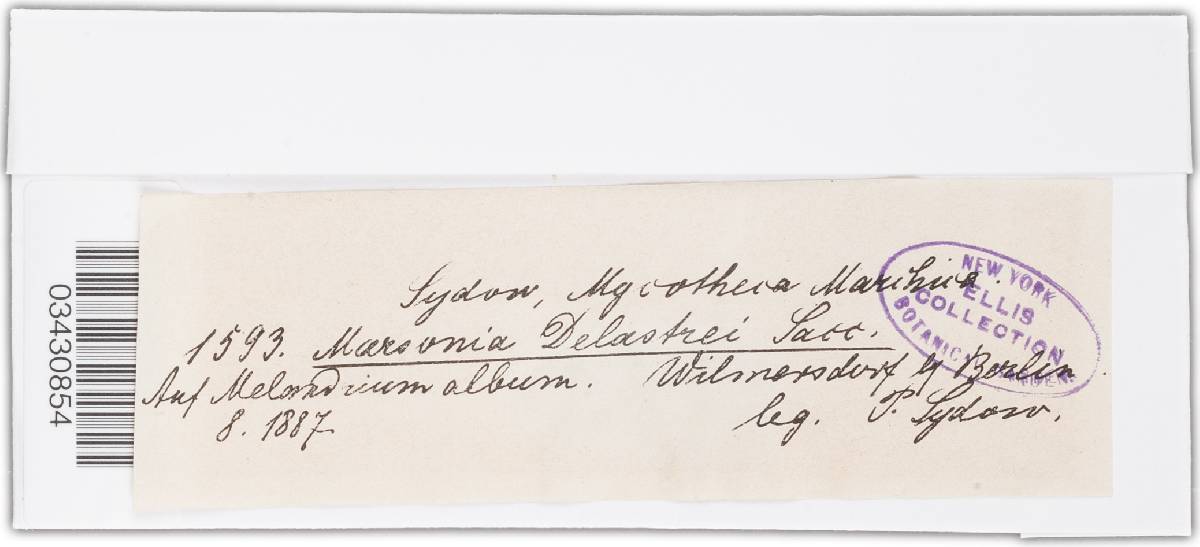 Sydow, Mycotheca Marchica.
1593. Marsonia Delastrei Sacc.
Auf Melandrium album. Wilmersdorf bj Berlin.
8. 1887. leg. P. Sydow.
NEW YORK
ELLIS
COLLECTION
BOTANICAL GARDEN.
03430854